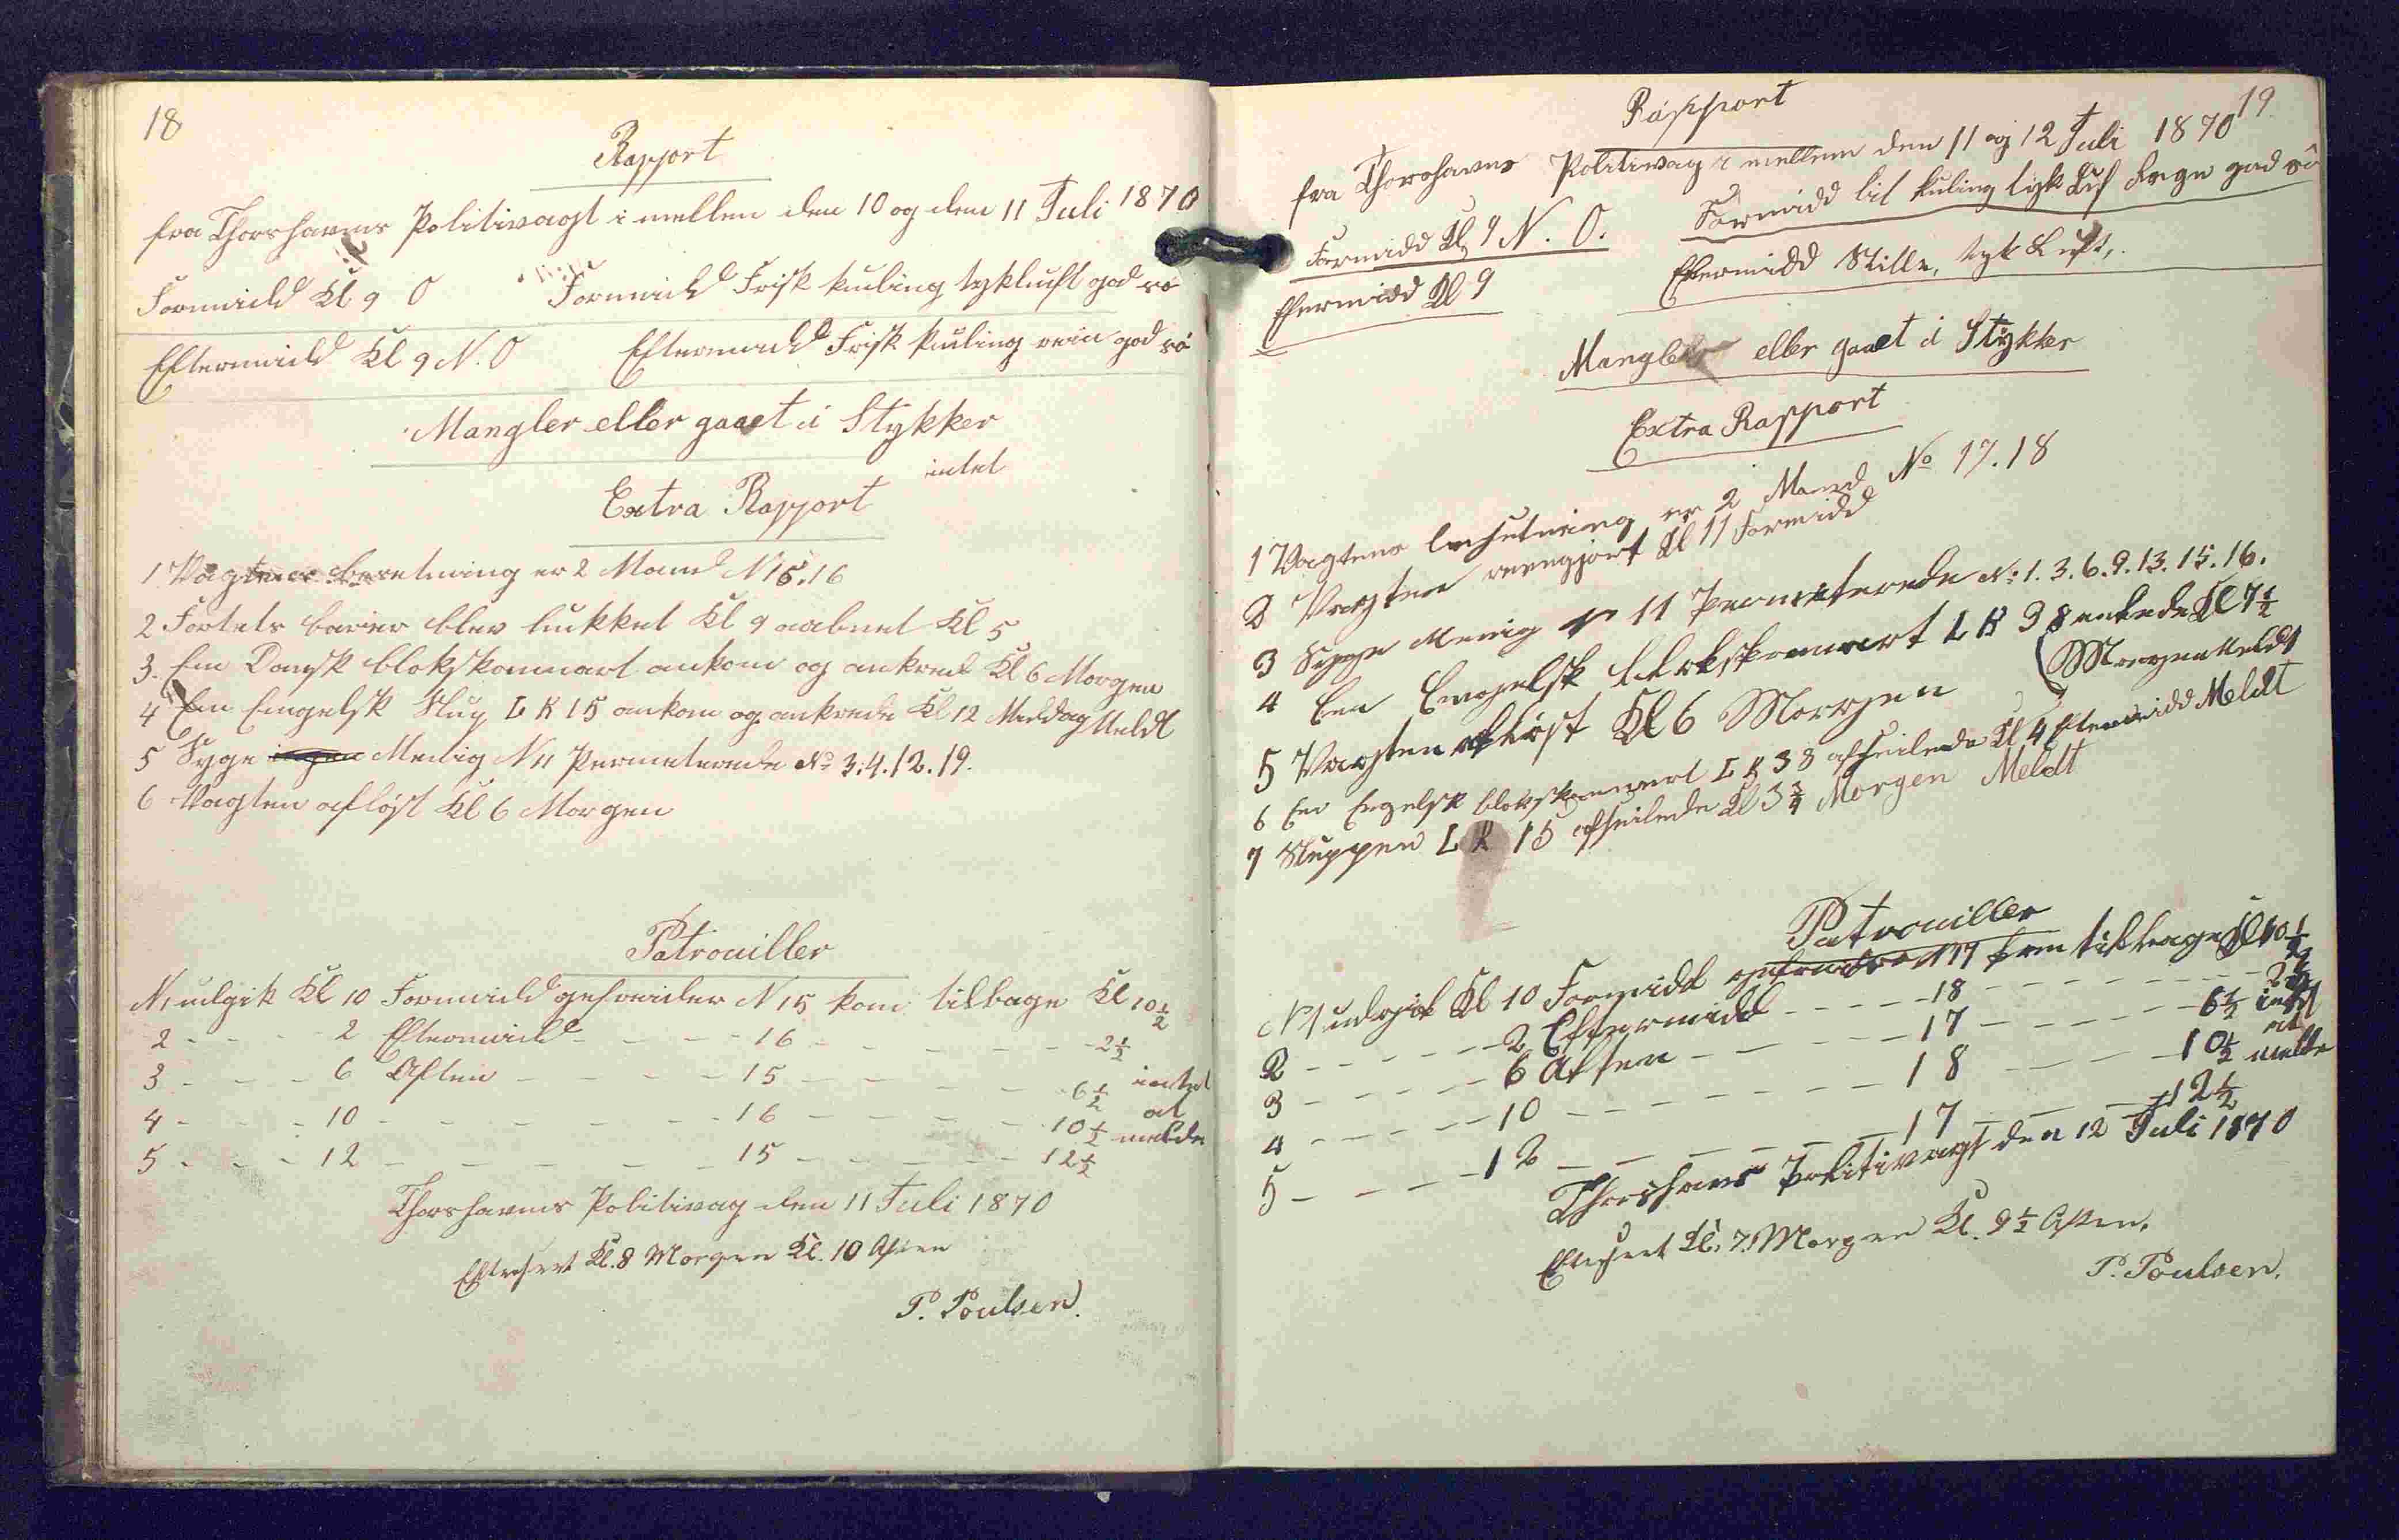 18
Rapport
fra Thorshavns Politivagt i mellen den 10 og den 11 Juli 1870
Formidd Kl 9 O Formidd Frisk kuling tykluft god rō
Eftermidd Kl 9 N. O Eftermidd Frisk kuling rein god rō
Mangler eller gaaet i Stykker
intet
Extra Rapport
1 Vagtens besetning er 2 Mand N 15.16
2 Fortets barier blev lukket Kl 9 aabnet Kl 5
3. En Dansk blokskonnart ankom og ankrede Kl 6 Morgen
4 En Engelsk Slup L K 15 ankom og ankrede Kl 12 Middag Meldt
5 Syge ingen Menig N 11 Permeterede No 3.4.12.19.
6 Vagten afløst Kl 6 Morgen
Patrouiller
N1 udgik Kl 10 Formidd gefreider N 15 kom tilbage Kl 10 1/2
2 - - - 2 Eftermidd - - - 16 - - - - - 2 1/2
3 - - - 6 Aften - - - - 15 - - - - - 6 1/2 intet
4 - - - 10 - - - - - - 16 - - - - - 10 1/2 at melde
5 - - - 12 - - - - - - 15 - - - - - 12 1/2
Thorshavns Politivag den 11 Juli 1870
Efterseet Kl. 8 Morgen Kl. 10 Aften
P. Poulsen.
19
Rapport
fra Thorshavns Politivag i mellem den 11 og 12 Juli 1870
Formidd Kl 9 N. O. Formidd lit kuling tyk Luf Regn god rô
Efermidd Kl 9 Eftermidd Stille, tyk Luft,.
Mangler eller gaaet i Stykker
Extra Rapport
1 Vagtens besetning er 2 Mand No 17.18
2 Vagten reengjort Kl 11 Formidd
3 Syge Menig N 11 Permeterede No 1.3.6.9.13.15.16.
4 En Engelsk blokskonnart L K 38 ankrede Kl 7 1/2
Morgen Meldt
5 Vagten afløst Kl 6 Morgen
6 En Engelsk blokskonnart L K 38 afseilede Kl 4 Eftermidd Meldt
7 Sluppen L K 15 afseilede Kl 3 3/4 Morgen Meldt
Patrouiller
N 1 udgik Kl 10 Formidd gefreider N 17 kom tilbage Kl 10 1/2
2 - - - - 2 Eftermidd - - - - 18 - - - - - - 2 1/2
3 - - - - 6 Aften - - - - - 17 - - - - - 6 1/2 intet
4 - - - - 10 - - - - - - - 18 - - - - 10 1/2 at melde
5 - - - - 12 - - - - - - - 17 - - - - 12 1/2
Thorshavns Politivagt den 12 Juli 1870
Efterseet Kl. 7. Morgen Kl. 9 1/2 Aften.
P. Poulsen.